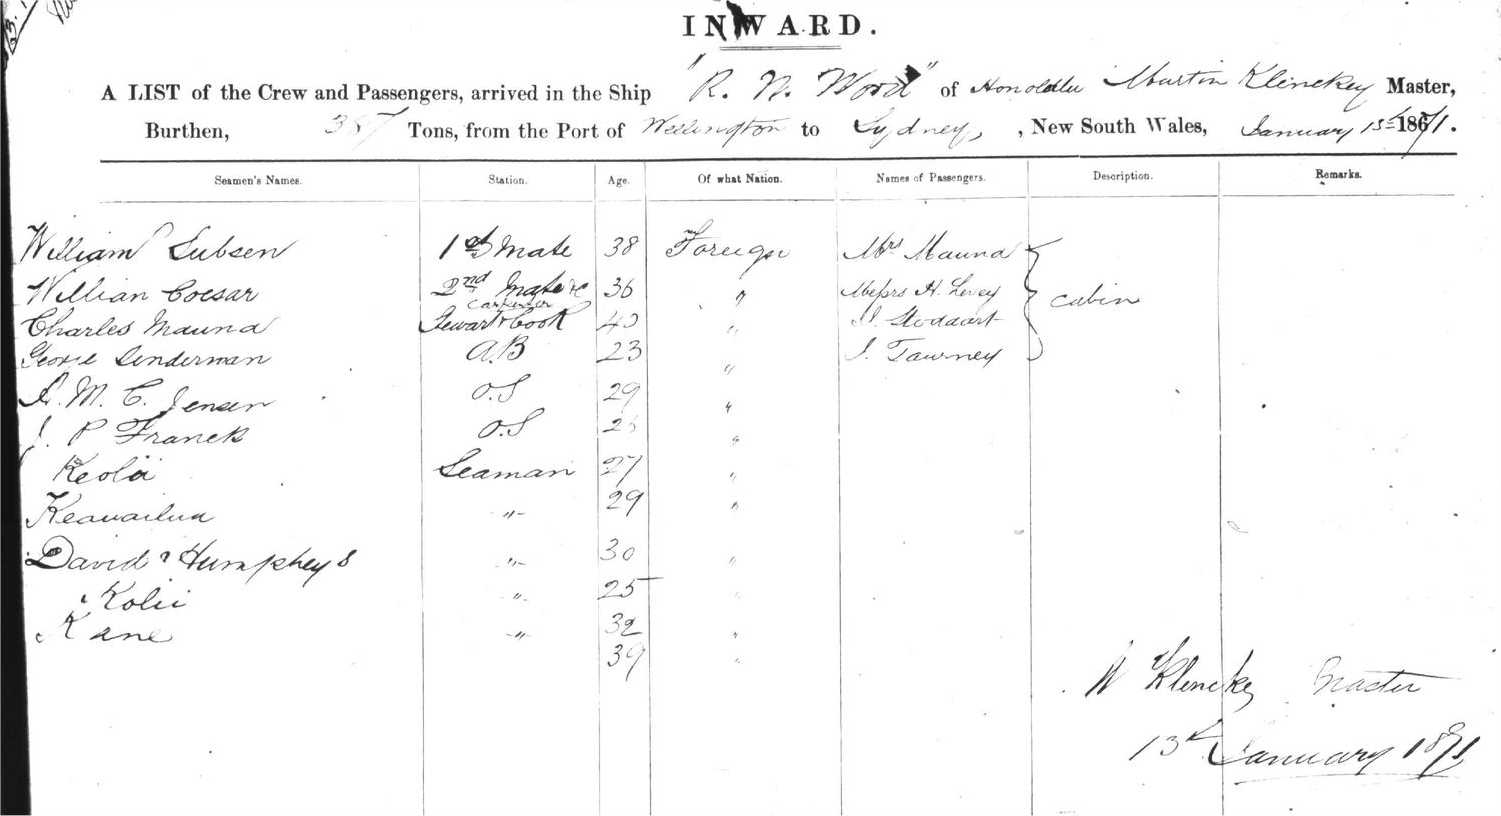 INWARD.
A LIST of the Crew and Passengers, arrived in the Ship "R. W. Wood" of Honolulu Martin Klenckey Master,
Burthen, 387 Tons, from the Port of Wellington to Sydney, , New South Wales, January 13th 1871.
Seamen's Names. Station. Age. Of what Nation. Names of Passengers. Description. Remarks.
William Lubsen 1st Mate 38 Foreign Mrs Mauna
William Coesar 2nd Mate & Carpenter 36 " Messrs H. Levey cabin
Charles Mauna Stewart & Cook 40 " J. Stoddart
George Lenderman A.B 23 " J. Tawney
M. C. Jensen O.S 29 "
J. P Franck O.S "
Keola Seaman 27 "
Keawailua " 29 "
David Humpheys " 30 "
Kolii " 25 "
Kane " 32 "
39 "
Klenckey Master
13th January 1871